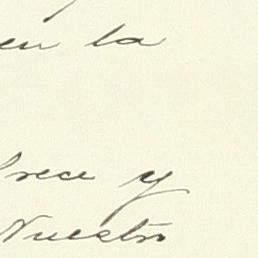 en la
frece y
Nuestro